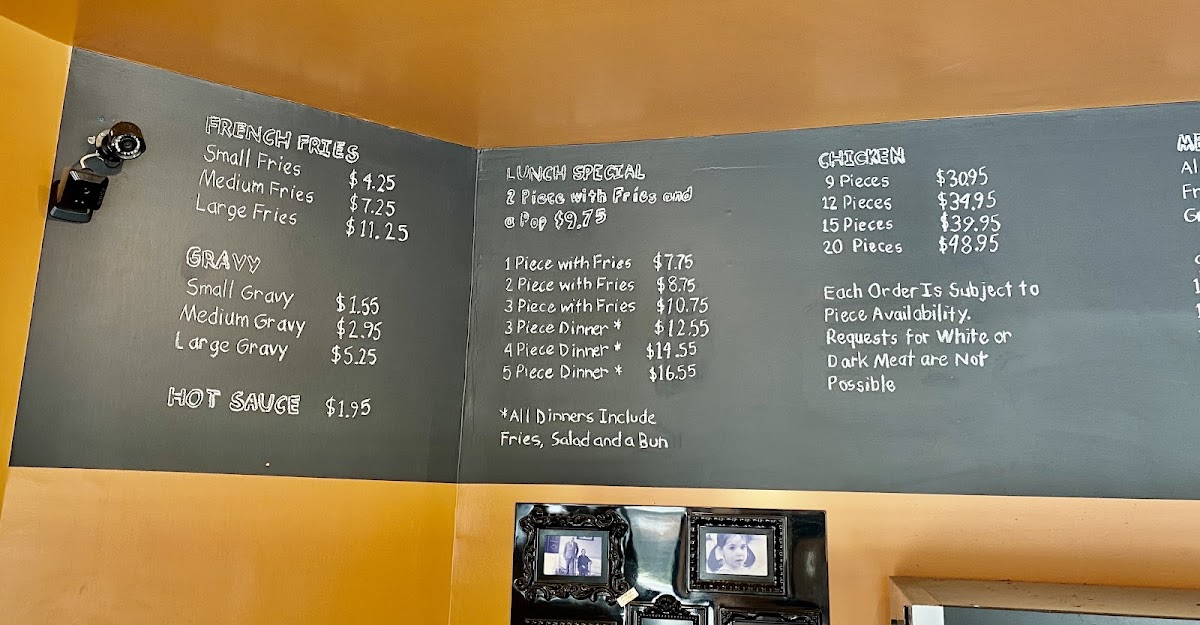 FRENCH FRIES
Small Fries $4.25
Medium Fries $7.25
Large Fries $11.25
GRAVY
Small Gravy $1.55
Medium Gravy $2.95
Large Gravy $5.25
HOT SAUCE $1.95
LUNCH SPECIAL
2 Piece with Fries and
a Pop $9.75
1 Piece with Fries $7.75
2 Piece with Fries $8.75
3 Piece with Fries $10.75
3 Piece Dinner * $12.55
4 Piece Dinner * $14.55
5 Piece Dinner * $16.55
*All Dinners Include
Fries, Salad and a Bun
CHICKEN
9 Pieces $30.95
12 Pieces $34.95
15 Pieces $39.95
20 Pieces $48.95
Each Order Is Subject to
Piece Availability.
Requests for White or
Dark Meat are Not
Possible